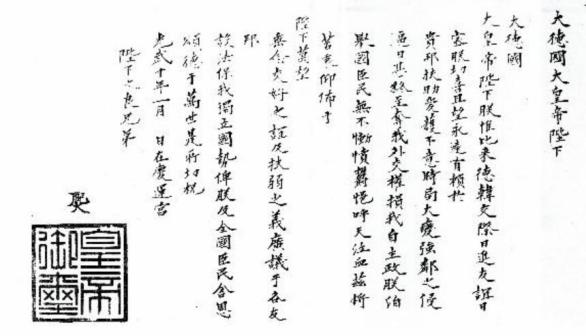 大德國大皇帝陛下
大德國
大皇帝陛下朕惟比来德韓交際日進友誼日
密朕切喜且望永遠有賴於
貴邦扶助愛護不意時局大變強鄰之侵
逼日甚終至奪我外交權損我自主政朕伯
舉國臣民無不慟憤鬱悒呼天泣血茲將
苦衷仰佈于
陛下萬望
垂念交好之誼及扶弱之義廣議于各友
邦
設法保我獨立國勢俾朕及全國臣民含恩
頌德于萬世是所切祝
光武十年一月 日在慶運宮
陛下之良兄弟
皇帝
御璽